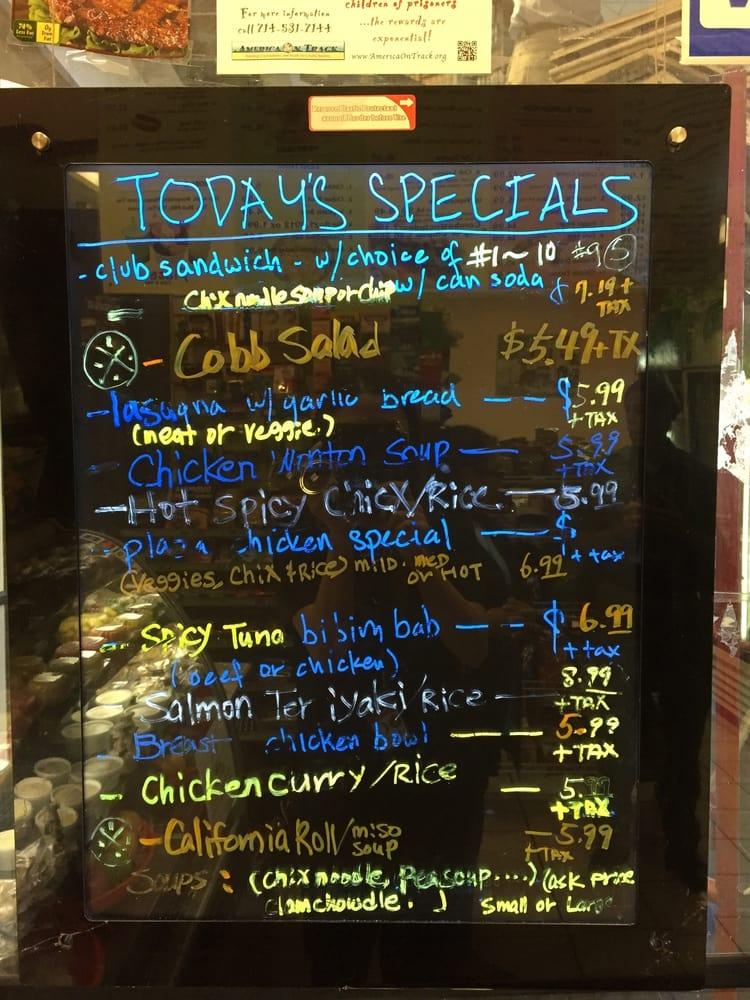 For more information
call 714-531-7144
AMERICA ON TRACK
children of prisoners
...the rewards are
exponential!
www.AmericaOnTrack.org
TODAY'S SPECIALS
- club sandwich - w/choice of #1~10 #9 (5)
Chix noodle Soup or Chip w/ can soda & 7.19 +
TAX
- Cobb Salad $5.49+TX
- lasagna w/ garlic bread -- $5.99
+ TAX
(meat or veggie.)
- Chicken Wonton Soup - 5.99
+TAX
- Hot Spicy Chicx/Rice. - 5.99
- plaza chicken special - $
+ tax
(veggies, Chix & Rice) mild. med or HOT 6.99
- Spicy Tuna bibim bab -- $ 6.99
+ tax
(beef or chicken)
- Salmon Teriyaki/Rice - 8.99
+TAX
- Breast chicken bowl - 5.99
+ TAX
- Chicken curry/Rice - 5.
+TAX
- California Roll/miso soup - 5.99
+TAX
Soups : (chix noodle, Pea soup ....) (ask price
clamchowdle. ) Small or Large